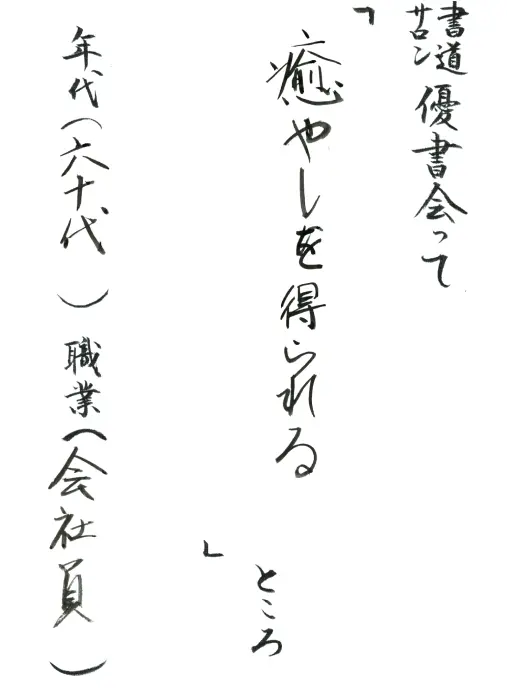 書道サロン 優書会って
「癒やしを得られる」ところ
年代(六十代)職業(会社員)